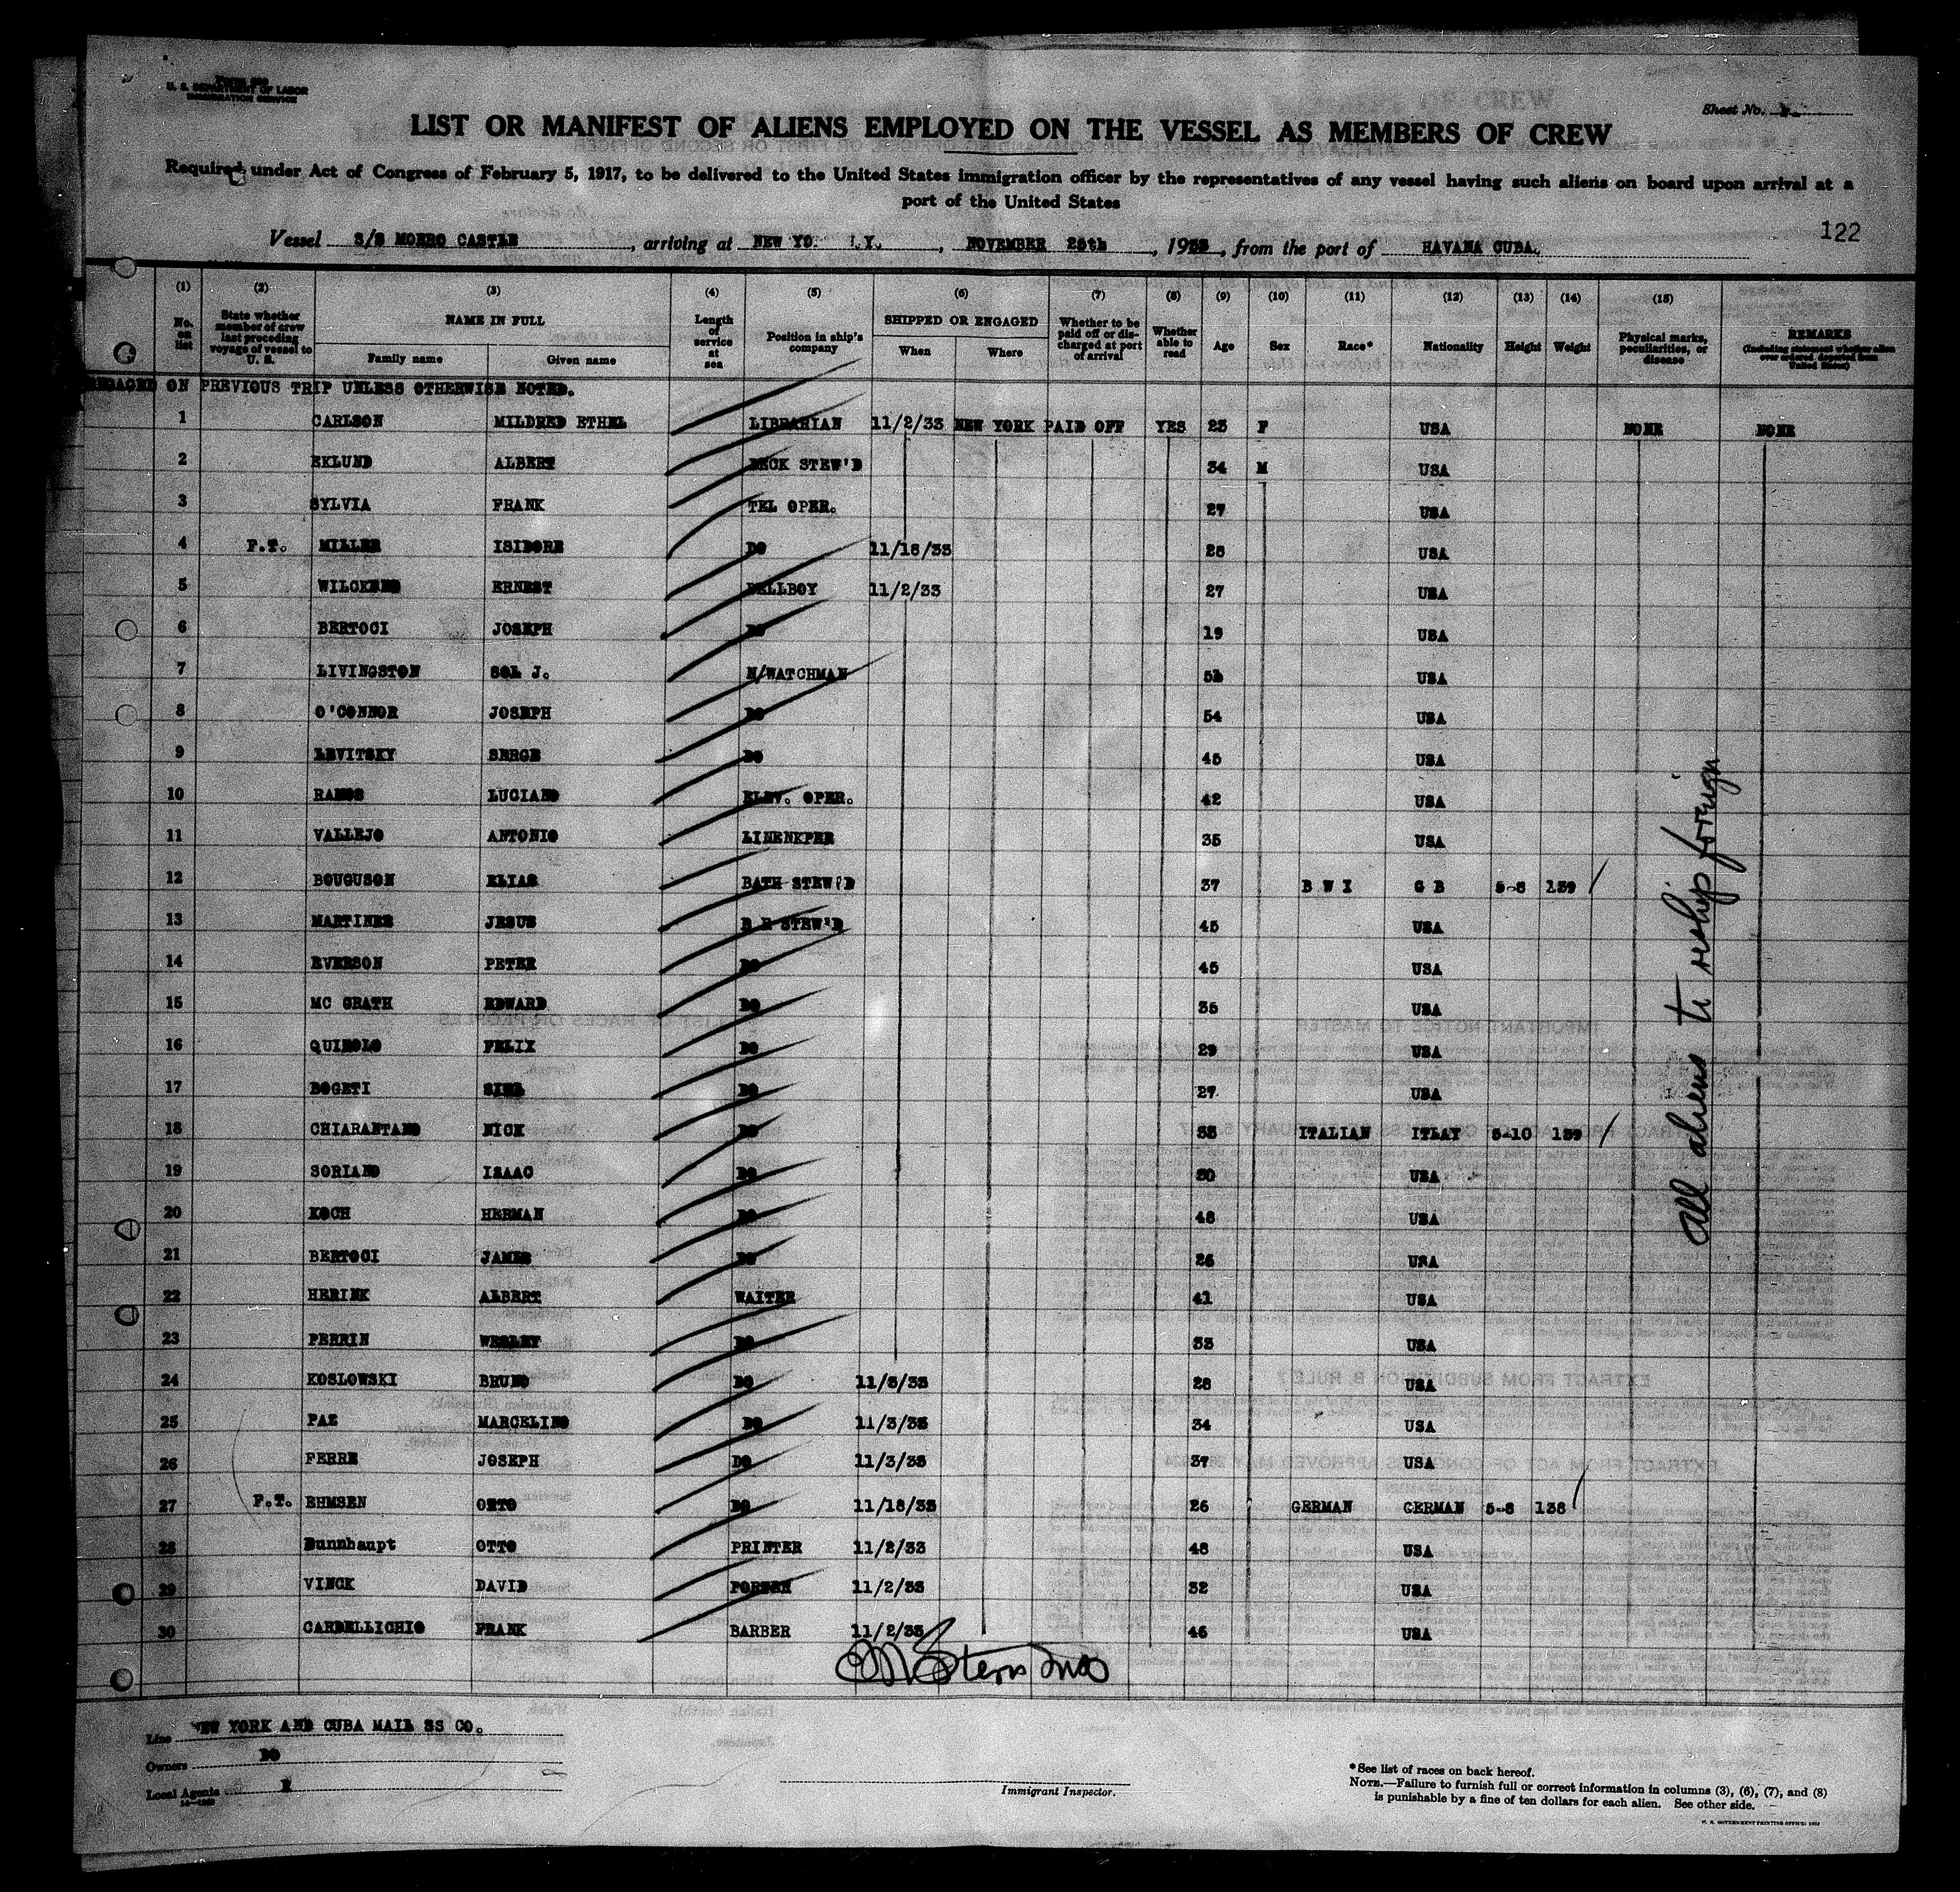 Form 689
U. S. DEPARTMENT OF LABOR
IMMIGRATION SERVICE
Sheet No.
LIST OR MANIFEST OF ALIENS EMPLOYED ON THE VESSEL AS MEMBERS OF CREW
Required under Act of Congress of February 5, 1917, to be delivered to the United States immigration officer by the representatives of any vessel having such aliens on board upon arrival at a
port of the United States
122
Vessel S/S MORRO CASTLE, arriving at NEW YO. .Y., NOVEMBER 25th, 1933, from the port of HAVANA CUBA.
(1) No. on list
(2) State whether member of crew last preceding voyage of vessel to U. S.
(3) NAME IN FULL Family name Given name
(4) Length of service at sea
(5) Position in ship's company
(6) SHIPPED OR ENGAGED When Where
(7) Whether to be paid off or discharged at port of arrival
(8) Whether able to read
(9) Age
(10) Sex
(11) Race*
(12) Nationality
(13) Height
(14) Weight
(15) Physical marks, peculiarities, or disease
REMARKS (Including statement whether alien ever ordered deported from United States)
ENGAGED ON PREVIOUS TRIP UNLESS OTHERWISE NOTED.
1 CARLSON MILDRED ETHEL LIBRARIAN 11/2/33 NEW YORK PAID OFF YES 23 F USA NONE NONE
2 EKLUND ALBERT DECK STEW'D 34 M USA
3 SYLVIA FRANK TEL OPER. 27 USA
4 F.T. MILLER ISIDORE DO 11/18/33 28 USA
5 WILCKENS ERNEST BELLBOY 11/2/33 27 USA
6 BERTOCI JOSEPH DO 19 USA
7 LIVINGSTON SOL J. N/WATCHMAN USA
8 O'CONNOR JOSEPH DO 54 USA
9 LEVITSKY SERGE DO 45 USA
10 RAMOS LUCIANO ELEV. OPER. 42 USA
11 VALLEJO ANTONIO LINENKPER 35 USA
12 BOUGUSON ELIAS BATH STEW'D 37 B W I G B 5-8 139
13 MARTINES JESUS B R STEW'D 45 USA
14 EVERSON PETER DO 45 USA
15 MC GRATH EDWARD DO 35 USA
16 QUIROLO FELIX DO 29 USA
17 BOGETI DO 27 USA
18 CHIARANTANO NICK DO 33 ITALIAN ITLAY 5-10 159
19 SORIANO ISAAC DO 30 USA
20 KOCH HERMAN DO 48 USA
21 BERTOCI JAMES DO 26 USA
22 HERINK ALBERT WAITER 41 USA
23 PERRIN WESLEY DO 33 USA
24 KOSLOWSKI BRUNO DO 11/3/33 28 USA
25 PAZ MARCELINO DO 11/3/33 34 USA
26 FERRE JOSEPH DO 11/3/33 37 USA
27 F.T. EHMSEN OTTO DO 11/18/33 26 GERMAN GERMAN 5-8 138
28 Dunnhaupt OTTO PRINTER 11/2/33 48 USA
29 VINCK DAVID PORTER 11/2/33 32 USA
30 CARDELLICHIO FRANK BARBER 11/2/33 46 USA
All aliens to reship foreign
Line NEW YORK AND CUBA MAIL SS CO.
Owners DO
Local Agents
Immigrant Inspector.
*See list of races on back hereof.
NOTE.—Failure to furnish full or correct information in columns (3), (6), (7), and (8)
is punishable by a fine of ten dollars for each alien. See other side.
U. S. GOVERNMENT PRINTING OFFICE: 1932